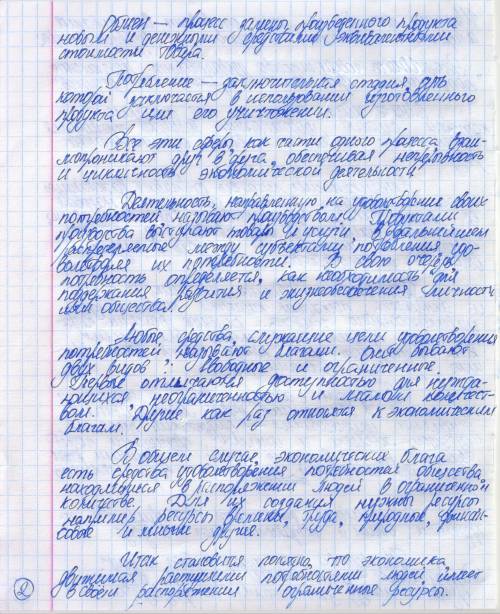 Обмен — процесс замены произведенного продукта
новым и денежными средствами эквивалентными
стоимости товара.
Потребление — заключительная стадия, суть
которой заключается в использовании изготовленного
продукта или его уничтожении.
Все эти сферы, как части одного процесса, взаи-
мопроникают друг в друга, обеспечивая непрерывность
и цикличность экономической деятельности.
Деятельность, направленную на удовлетворение своих
потребностей называют производством. Продуктами
производства выступают товары и услуги, в дальнейшем
распределяемые между субъектами потребления, удо-
волетворяя их потребности. В свою очередь
потребность определяется, как необходимость для
поддержания развития и жизнеобеспечения личности
или общества.
Любые средства, служащие цели удовлетворения
потребностей называют благами. Они бывают
двух видов: свободные и ограниченные.
Первые отличаются доступностью для нужда-
ющихся, неограниченностью и количест-
вом. Другие как раз относятся к экономическим
благам.
В общем случае, экономических блага
есть средства удовлетворения потребностей общества,
находящиеся в распоряжении людей в ограниченном
количестве. Для их создания нужны ресурсы
например ресурсы времени, труда, природные, финан-
совые и многие другие.
Итак становится понятно, что экономика,
движимая растущими потребностями людей, имеет
в своем распоряжении ограниченные ресурсы.
2